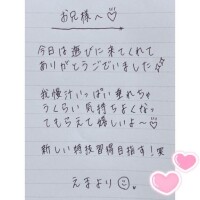 お兄様へ♡
今日は遊びに来てくれて
ありがとうございました
我慢汁いっぱい垂れちゃ
うくらい気持ちよくなっ
てもらえて嬉しいよ〜♡
新しい特技習得目指す！笑
えまより☺